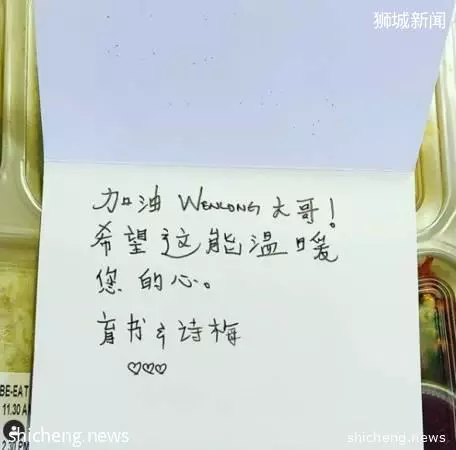 狮城新闻
shicheng.news
加油 WENLONG 大哥!
希望这能温暖
您的心。
育书 & 诗梅
♡♡♡
BE-EAT
11.30 A
2.30 PM
shicheng.news
shicheng.news